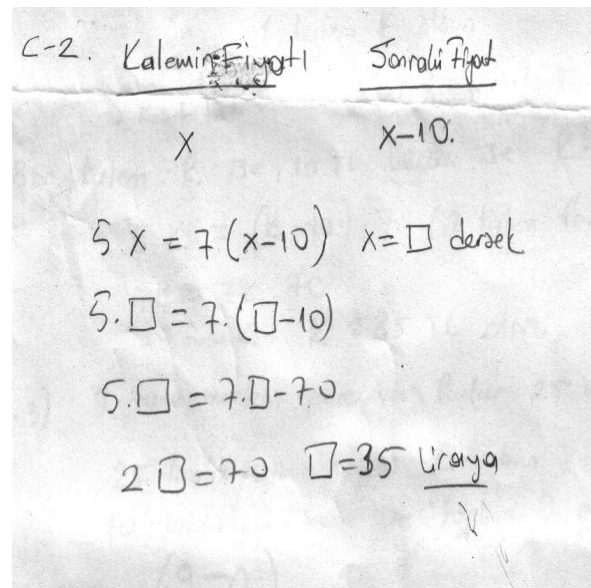 C-2. Kalemin Fiyatı Sonraki Fiyat
x x-10.
5.x = 7(x-10) x=□ dersek
5.□ = 7.(□-10)
5.□ = 7.□-70
2□=70 □=35 liraya